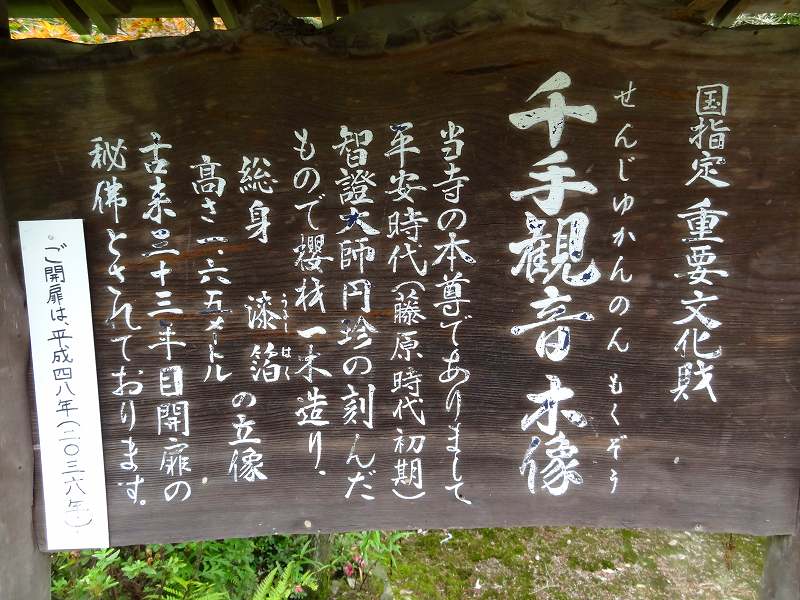 国指定 重要文化財
せんじゆかんのん もくぞう
千手観音木像
当寺の本尊でありまして
平安時代(藤原時代初期)
智證大師円珍の刻んだ
もので櫻材一木造り、
総身 漆箔の立像
うるし はく
高さ一、六五メートル
古来三十三年目開扉の
秘佛とされております。
ご開扉は、平成四八年(二〇三六年)